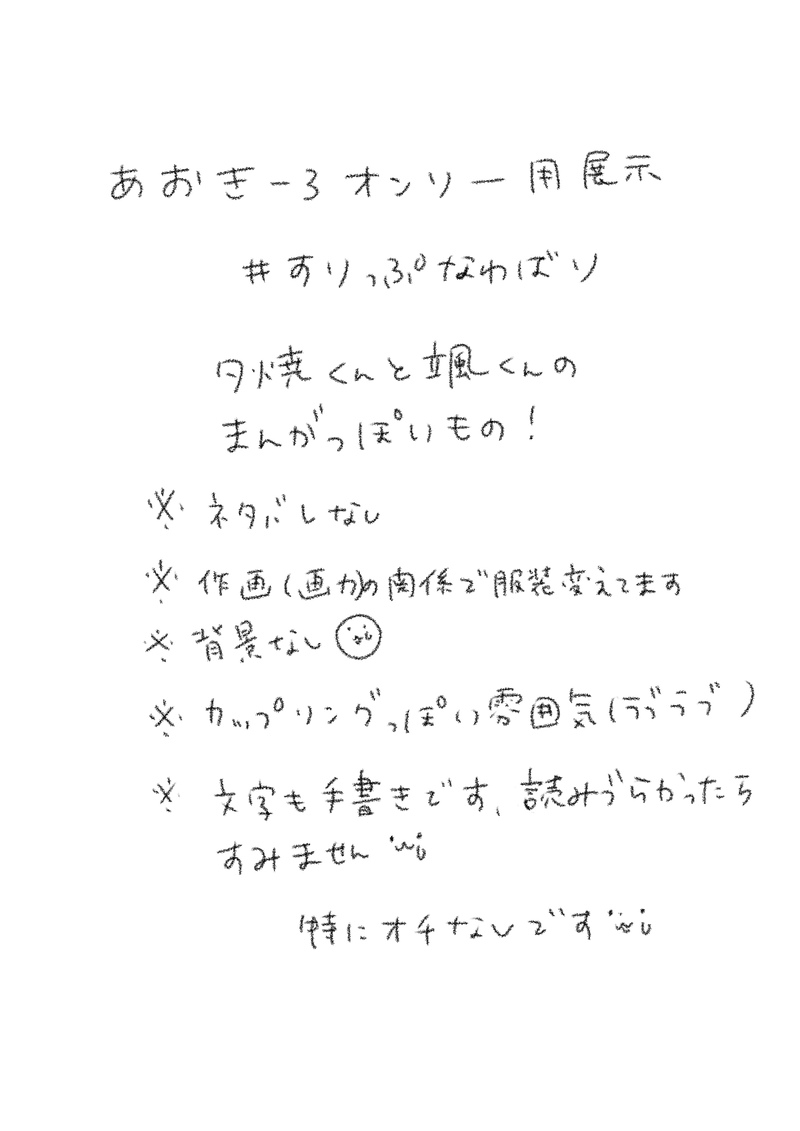 あおぎーろオンリー用展示
#すりっぷなわばり
夕焼くんと颯くんの
まんがっぽいもの!
※ ネタバレなし
※ 作画(画力)の関係で服装変えてます
※ 背景なし
※ カップリングっぽい雰囲気(ラブラブ)
※ 文字も手書きです、読みづらかったら
すみません
特にオチなしです